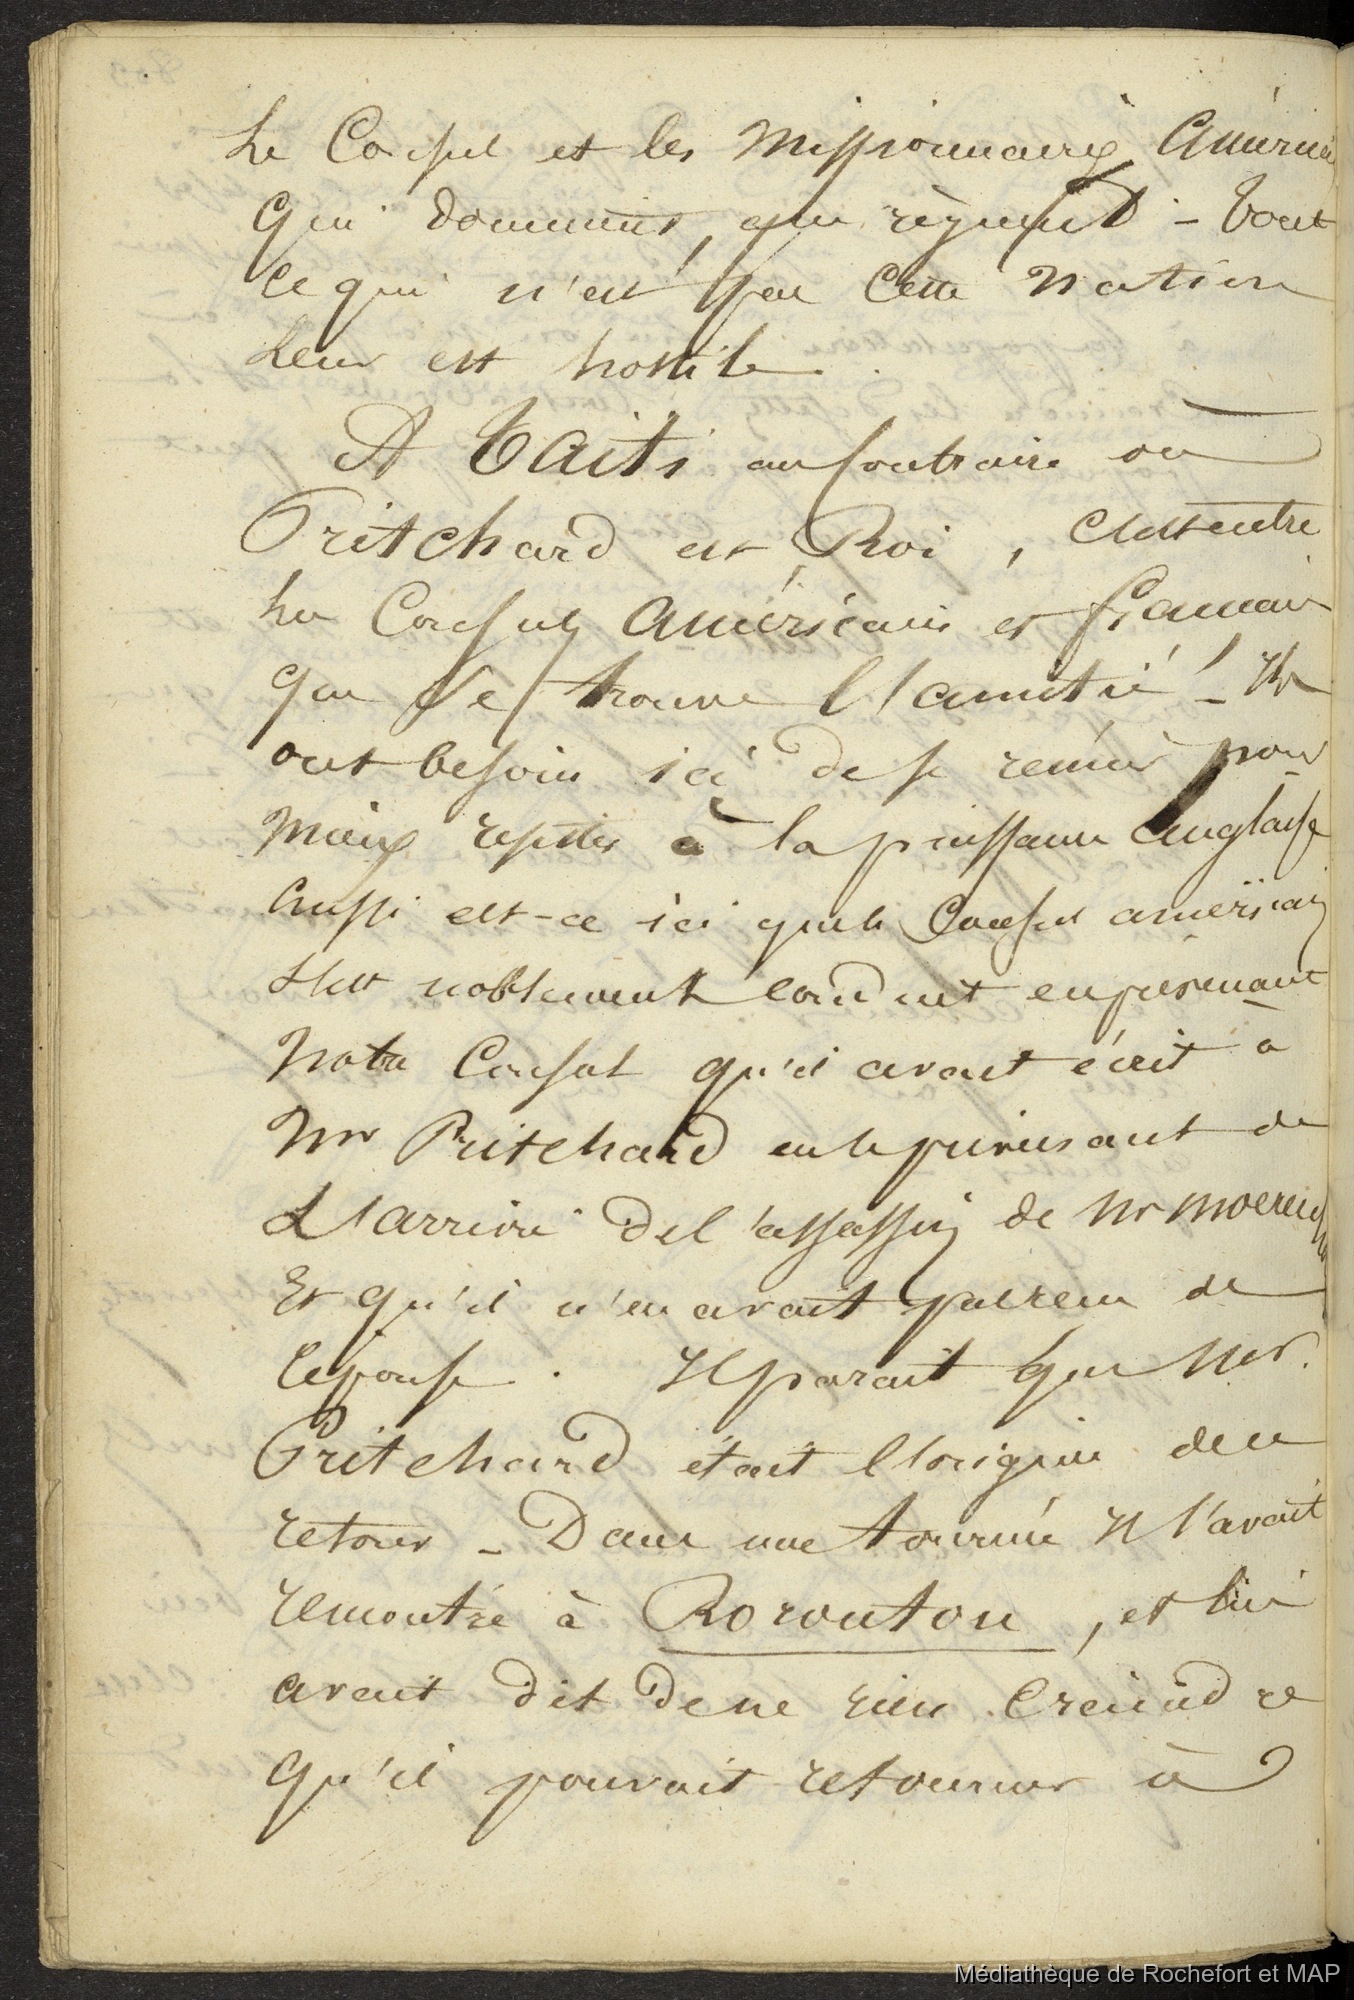 Le Consul et les Missionnaires Américai
qui dominent, qui règnent - Tout
ce qui n'est pas cette Nation
Leur est hostile.
A Taiti au Contraire où
Pritchard est Roi, C'est entre
les Consuls Américains et français
que se trouve l'amitié - Ils
ont besoin ici de se réunir pour
Mieux resister à la puissance anglaise
Aussi est-ce ici que le Consul américain
s'est noblement conduit en prévenant
Notre Consul qu'il avait écrit à
Mr Pritchard en le prévenant de
L'arrivée de l'assassin de Mr Moerenhout
Et qu'il n'en avait pas reçu de
reponse. Il parait que Mr.
Pritchard était l'origine de ce
retour - Dans une tournée Il l'avait
remontré à Rorouton, et lui
avait dit de ne rien Craindre
qu'il pouvait retourner à
Médiathèque de Rochefort et MAP